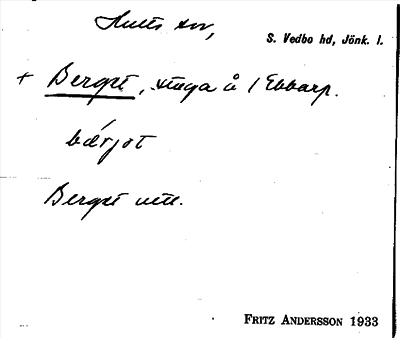 Hults sn,
S. Vedbo hd, Jönk. l.
+ Berget, stuga å /Ebbarp.
bærjət
Berget utt.
FRITZ ANDERSSON 1933